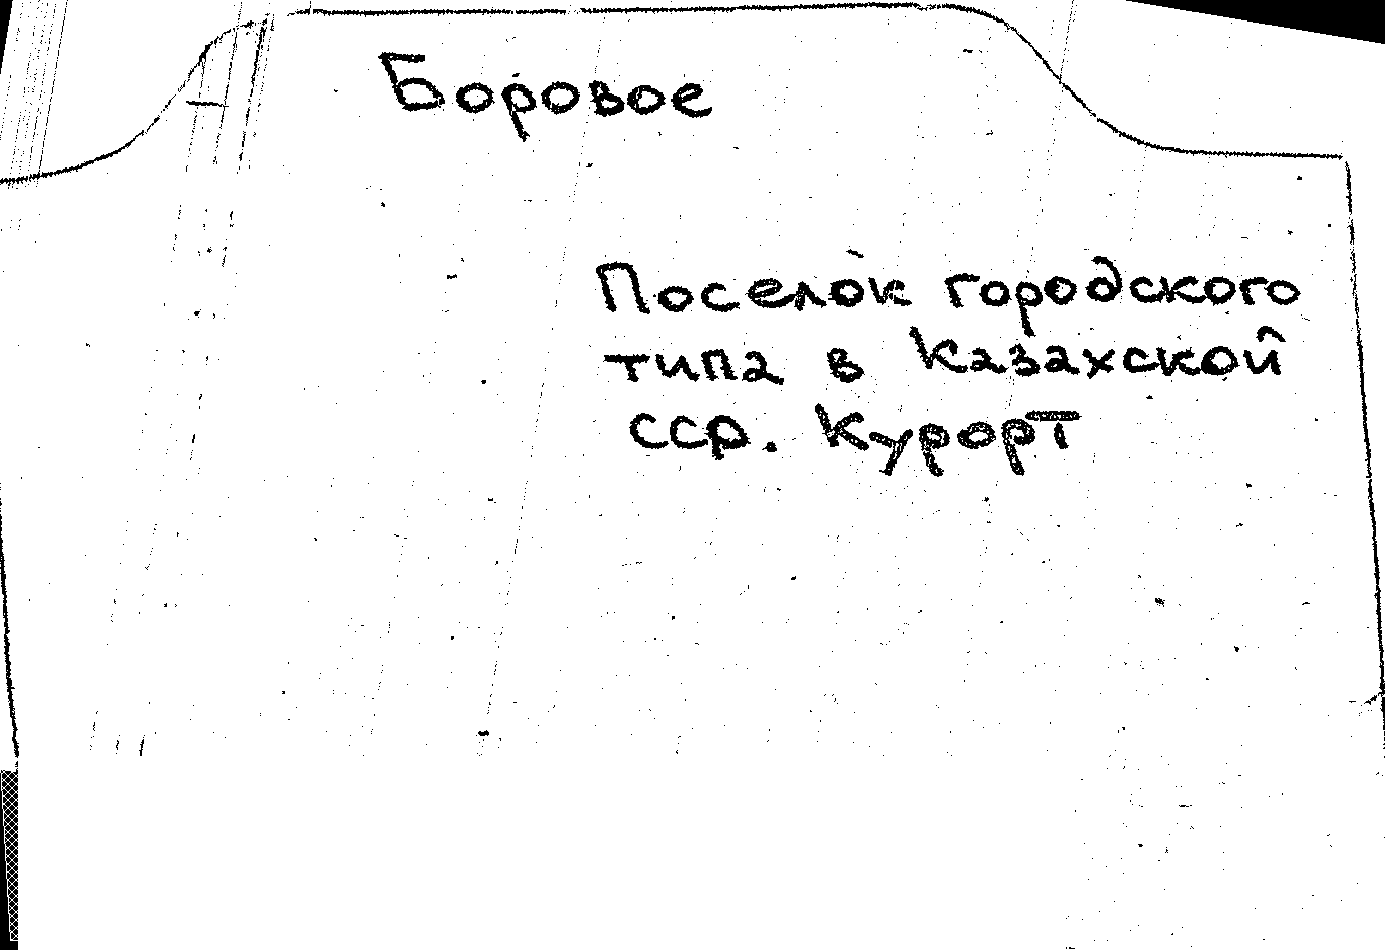 Боровое
Поселок городского
типа в Казахской
ССР. Курорт